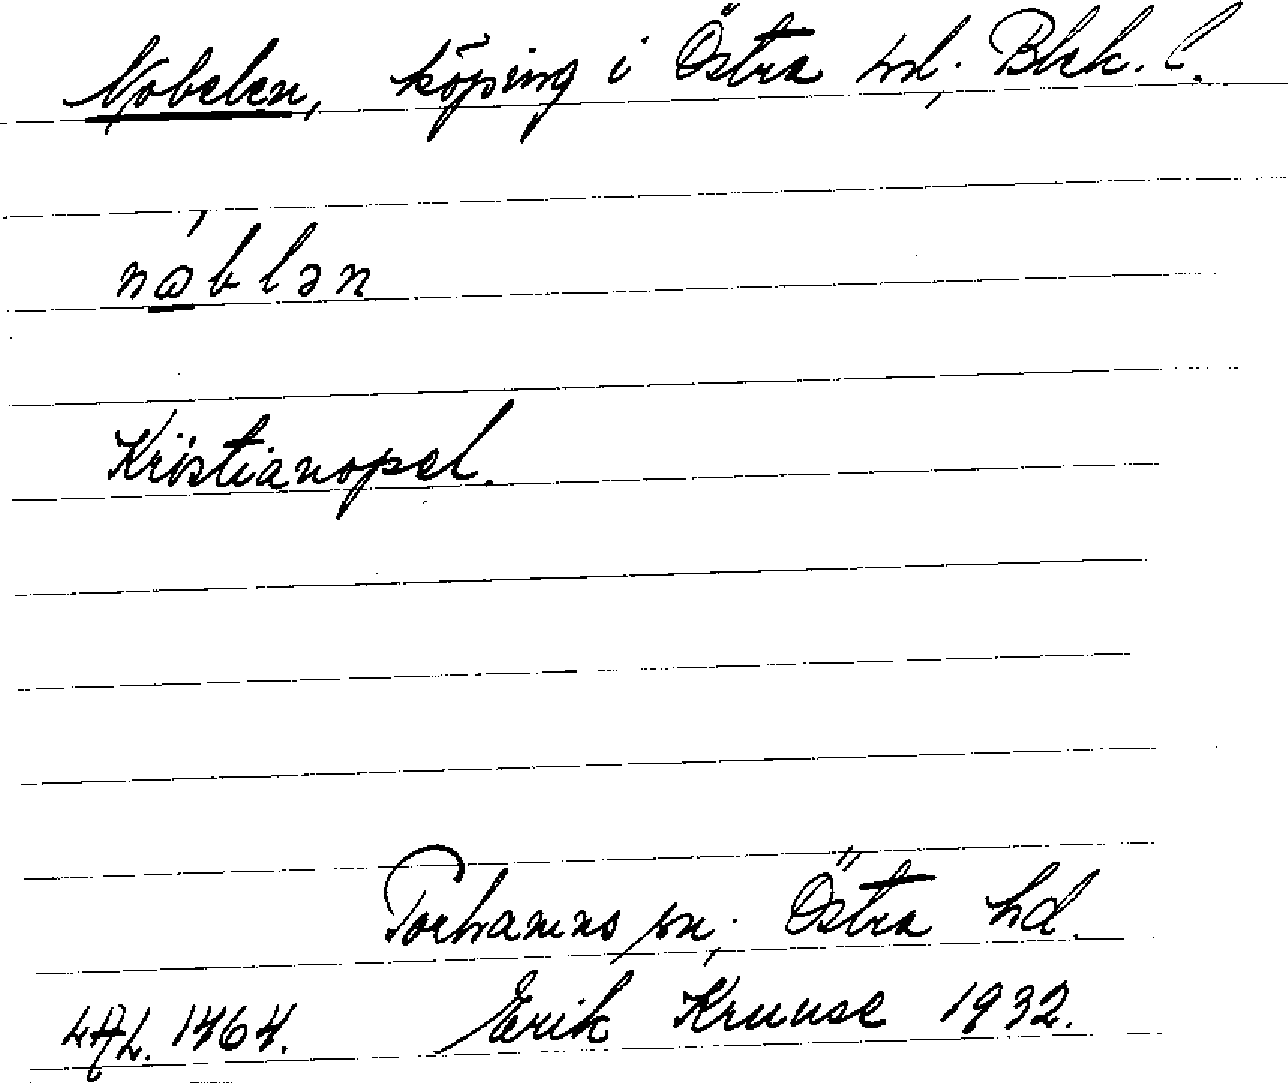 Nobelen, köping i Östra hd, Blek. l.
noblən
Kristianopel.
Torhamns sn; Östra hd.
LAL. 1464. Erik Kruuse 1932.